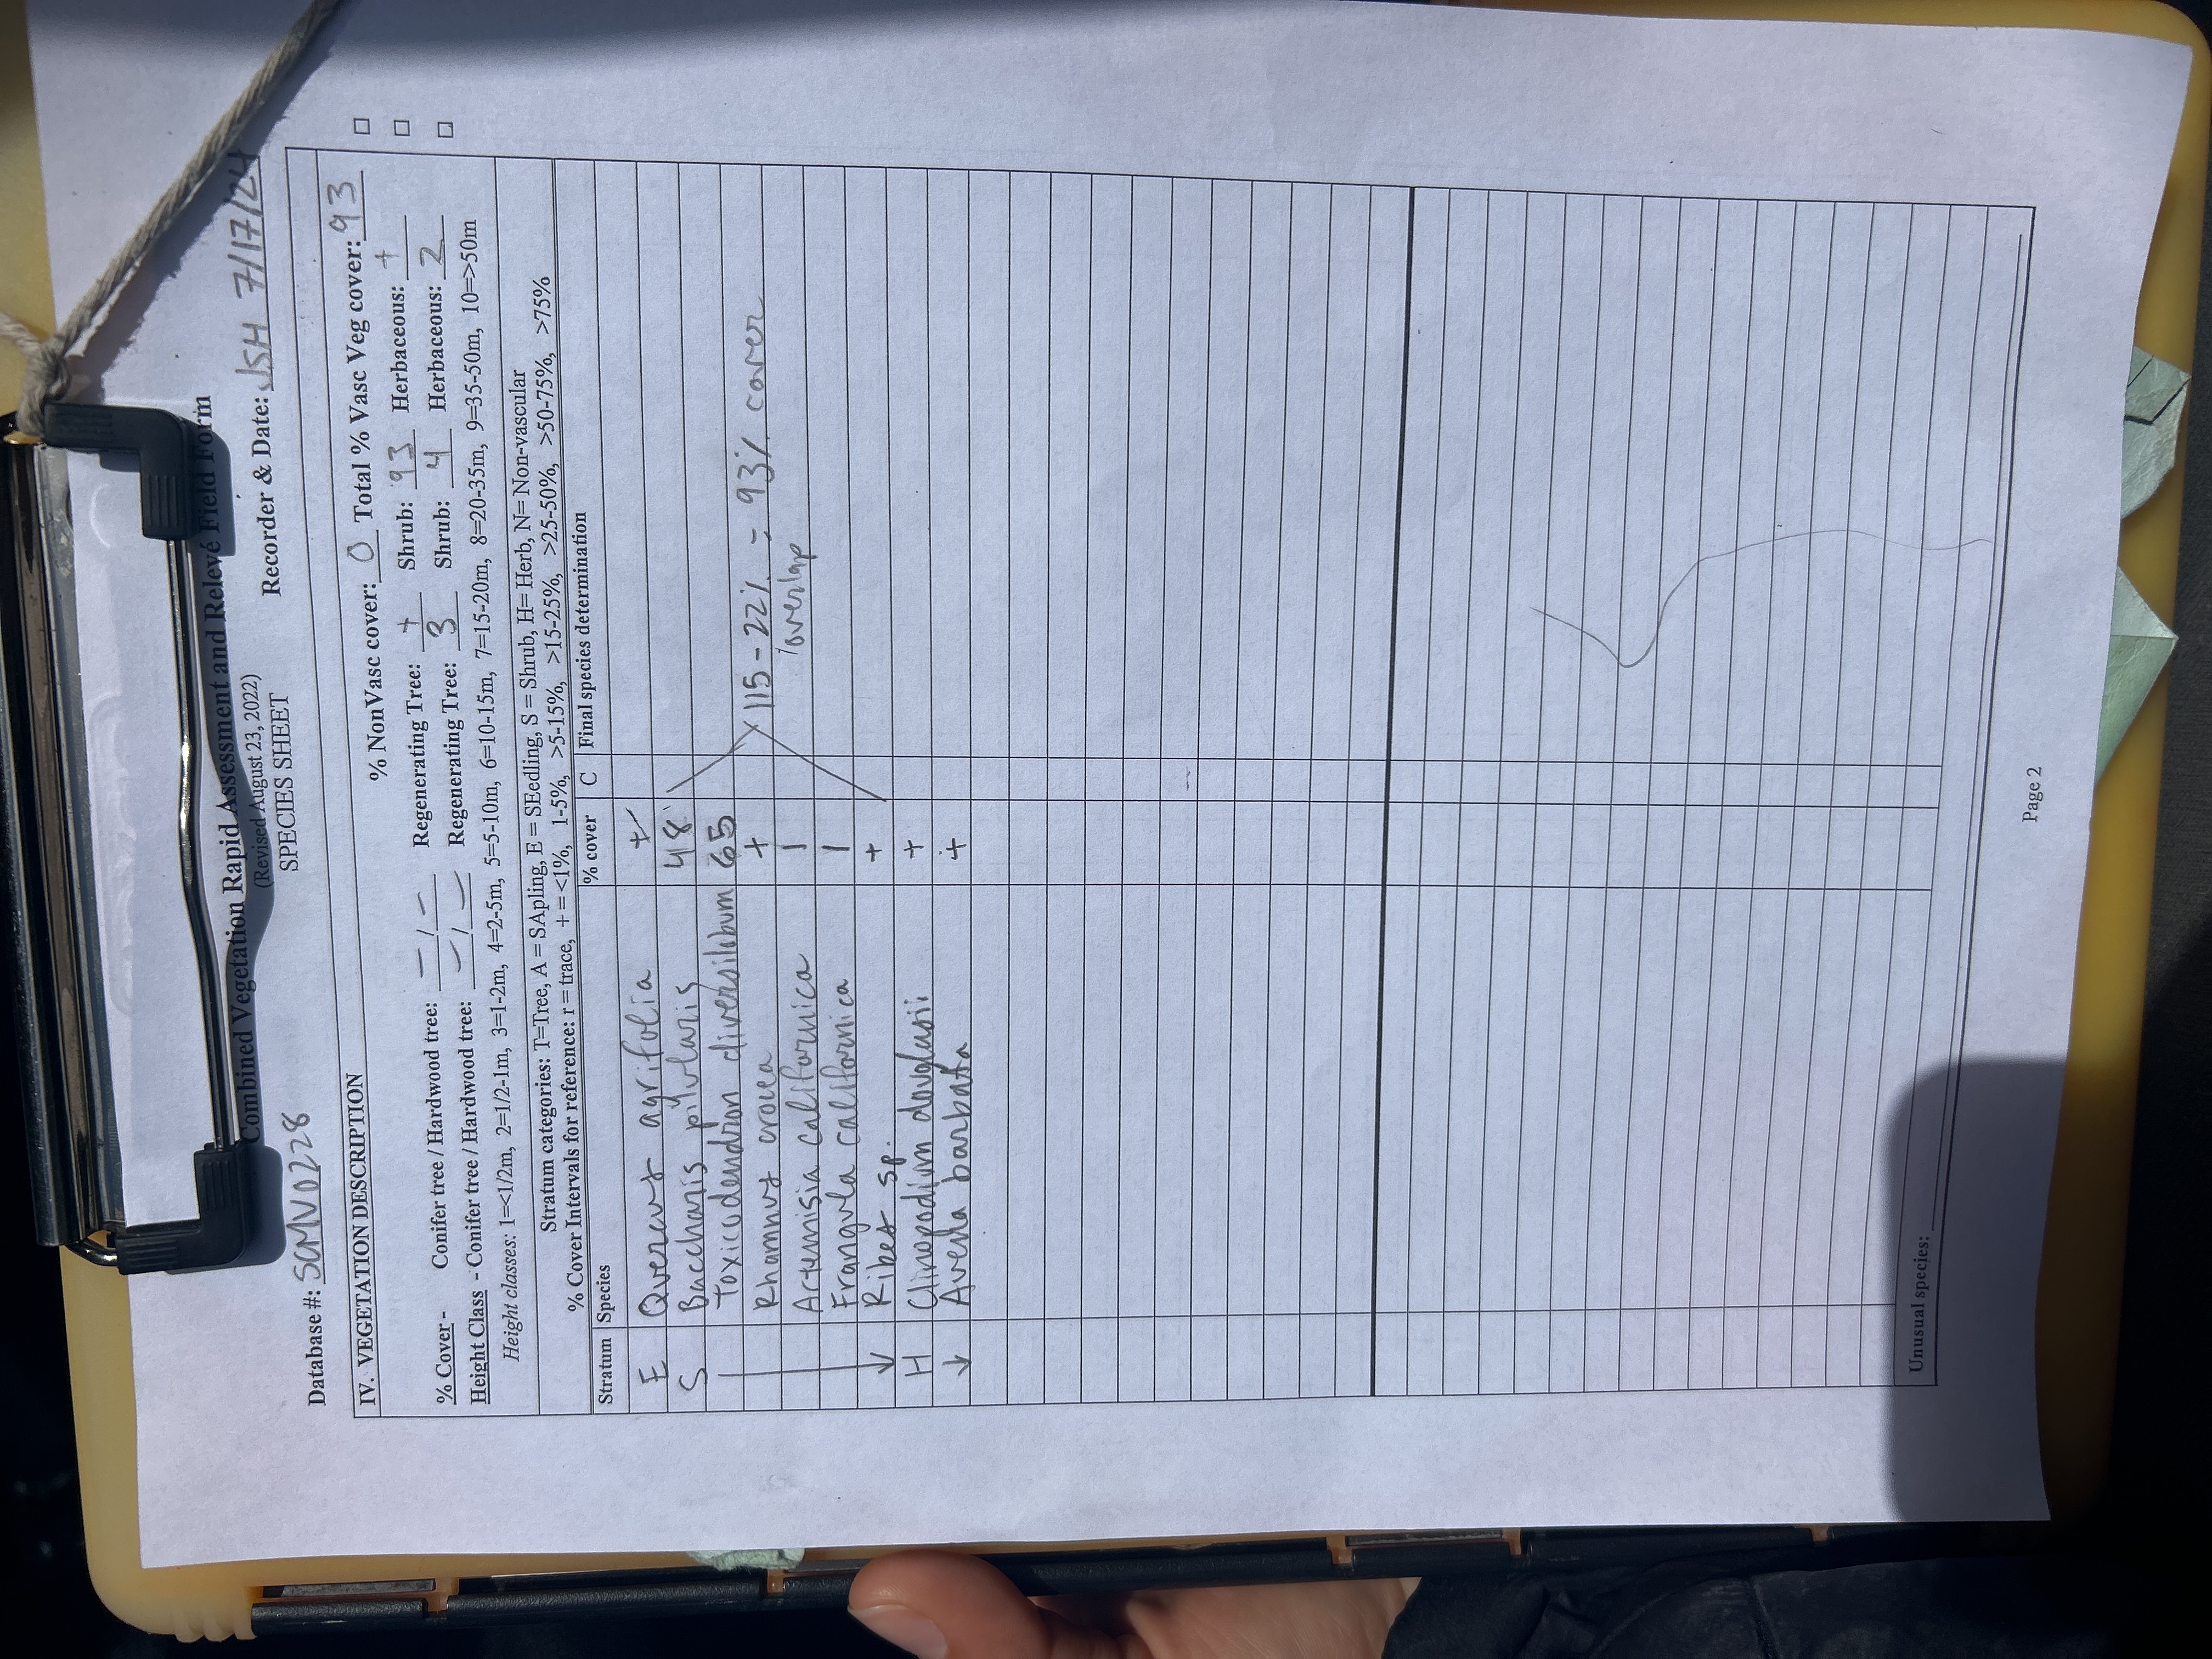 Combined Vegetation Rapid Assessment and Relevé Field Form
(Revised August 23, 2022)
SPECIES SHEET
Database #: SCMV0228 Recorder & Date: JSH 7/17/24
IV. VEGETATION DESCRIPTION
% NonVasc cover: 0 Total % Vasc Veg cover: 93 □
% Cover - Conifer tree / Hardwood tree: - / - Regenerating Tree: + Shrub: 93 Herbaceous: + □
Height Class - Conifer tree / Hardwood tree: - / - Regenerating Tree: 3 Shrub: 4 Herbaceous: 2 □
Height classes: 1=<1/2m, 2=1/2-1m, 3=1-2m, 4=2-5m, 5=5-10m, 6=10-15m, 7=15-20m, 8=20-35m, 9=35-50m, 10=>50m
Stratum categories: T=Tree, A = SApling, E = SEedling, S = Shrub, H= Herb, N= Non-vascular
% Cover Intervals for reference: r = trace, + = <1%, 1-5%, >5-15%, >15-25%, >25-50%, >50-75%, >75%
Stratum Species % cover C Final species determination
E Quercus agrifolia +
S Baccharis pilularis 48
Toxicodendron diversilibum 65
Rhamnus crocea + 115-22% = 93% cover
Artemisia californica 1 overlap
Frangula californica 1
↓ Ribes sp. +
H Clinopodium douglasii +
↓ Avena barbata +
Unusual species:
Page 2